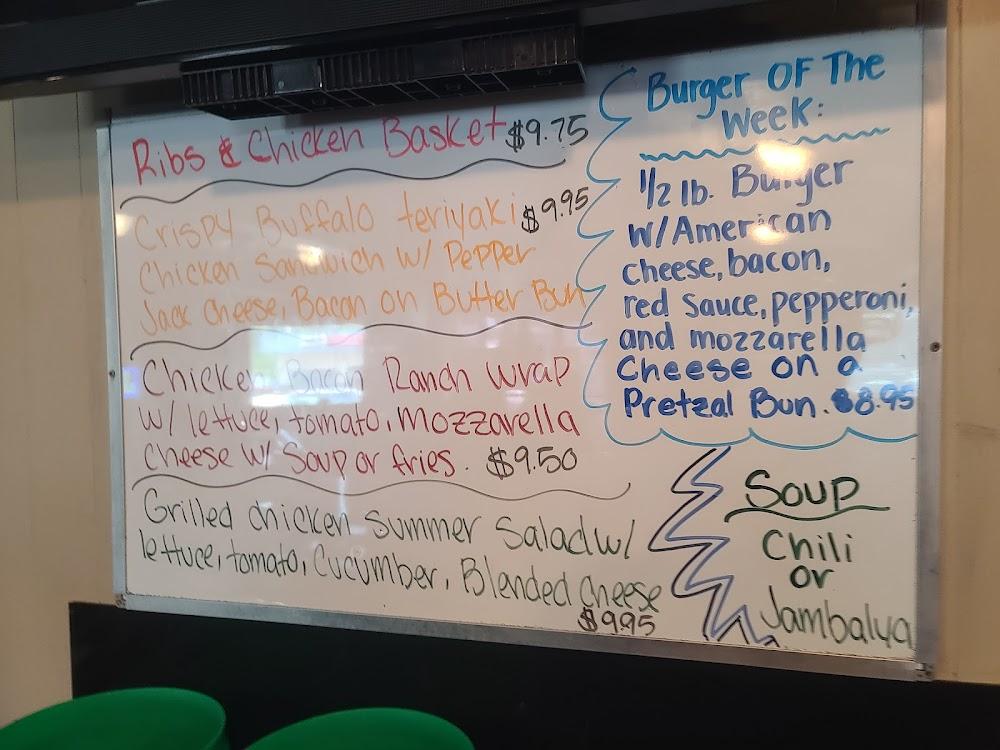 Ribs & Chicken Basket $9.75
Crispy Buffalo teriyaki $9.95
Chicken Sandwich w/ Pepper
Jack Cheese, Bacon on Butter Bun
Chicken Bacon Ranch Wrap
w/ lettuce, tomato, Mozzarella
Cheese w/ Soup or fries. $9.50
Grilled chicken Summer Salad w/
lettuce, tomato, Cucumber, Blended Cheese
$9.95
Burger OF The
Week:
1/2 lb. Burger
w/ American
cheese, bacon,
red sauce, pepperoni,
and mozzarella
Cheese on a
Pretzal Bun. $8.95
Soup
Chili
or
Jambalya